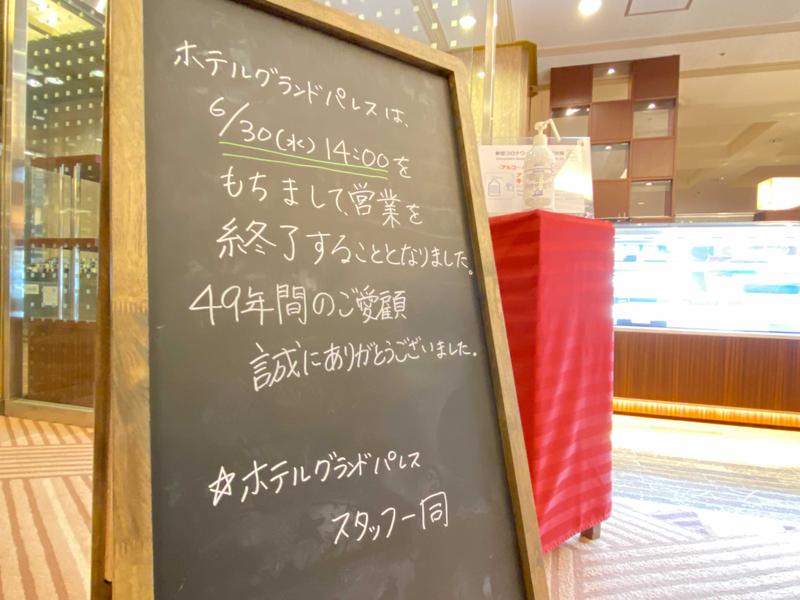 ホテルグランドパレスは、
6/30(水)14:00を
もちまして、営業を
終了することとなりました。
49年間のご愛顧
誠にありがとうございました。
☆ホテルグランドパレス
スタッフ一同
新型コロナウ